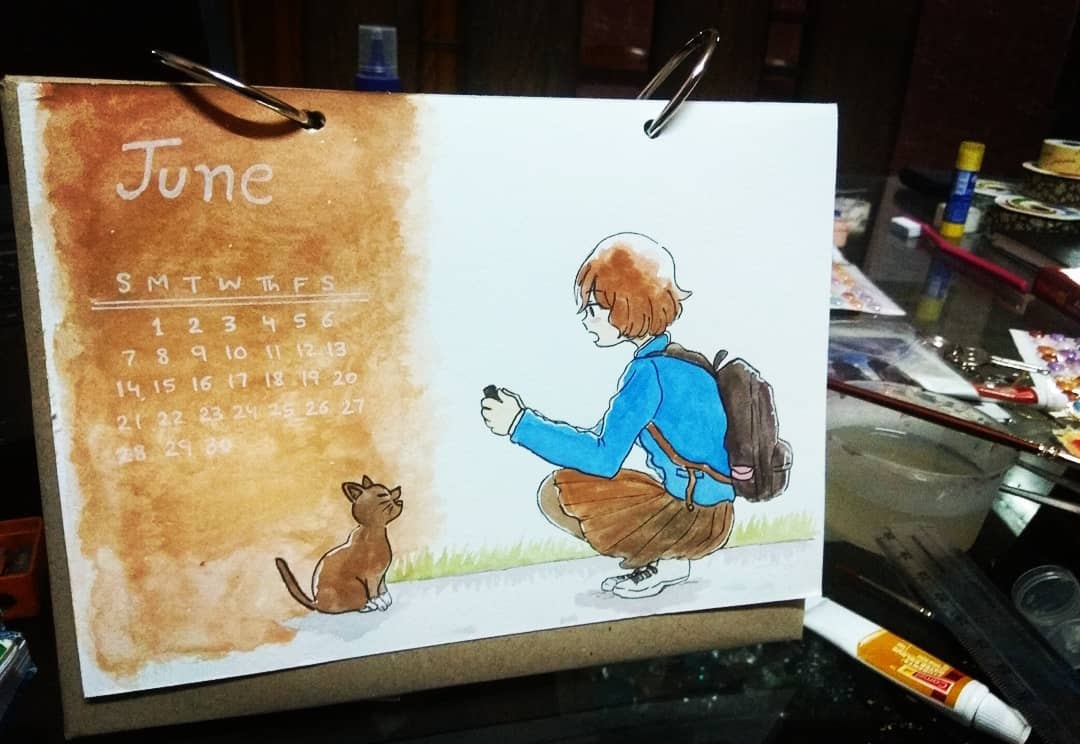 June
S M T W Th F S
1 2 3 4 5 6
7 8 9 10 11 12 13
14 15 16 17 18 19 20
21 22 23 24 25 26 27
28 29 30
Camel